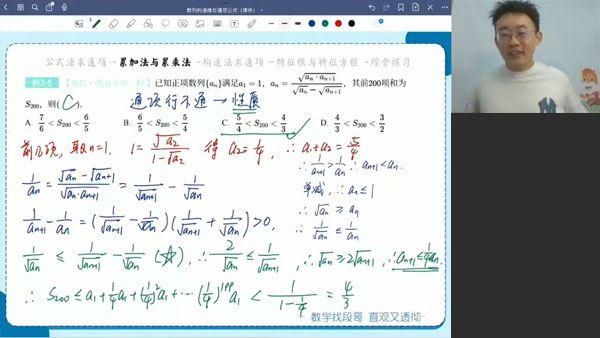 数列的递推与通项公式（课件）
公式法求通项→累加法与累乘法→构造法求通项→特征根与特征方程→综合练习
例2-5 已知正项数列{aₙ}满足a₁ = 1，aₙ = √(aₙ·aₙ₊₁)/(√aₙ − √aₙ₊₁)，其前200项和为
S₂₀₀，则（ C ）. 通项行不通 → 性质
A. 7/6 < S₂₀₀ < 6/5 B. 6/5 < S₂₀₀ < 5/4 C. 5/4 < S₂₀₀ < 4/3 D. 4/3 < S₂₀₀ < 3/2
前几项, 取n=1. 1 = √a₂/(1−√a₂) 得 a₂=1/4, ∴a₁+a₂=5/4
1/aₙ = (√aₙ−√aₙ₊₁)/√(aₙ·aₙ₊₁) = 1/√aₙ₊₁ − 1/√aₙ
∴ 1/aₙ₊₁ > 1/aₙ ∴ aₙ₊₁<aₙ.
单减, ∴ aₙ ≤ 1
1/aₙ₊₁ − 1/aₙ = (1/√aₙ₊₁ − 1/√aₙ)(1/√aₙ₊₁ + 1/√aₙ) >0,
∴ √aₙ ≥ aₙ
∴ 1/√aₙ ≤ 1/aₙ
1/√aₙ ≤ 1/√aₙ₊₁ − 1/√aₙ (☆), ∴ 2/√aₙ ≤ 1/√aₙ₊₁, ∴√aₙ ≥ 2√aₙ₊₁, ∴aₙ₊₁ ≤ 1/4 aₙ.
∴ S₂₀₀ ≤ a₁ + 1/4 a₁ + (1/4)² a₁ + ··· (1/4)¹⁹⁹ a₁ < 1/(1−1/4) = 4/3
数学找段哥 直观又透彻